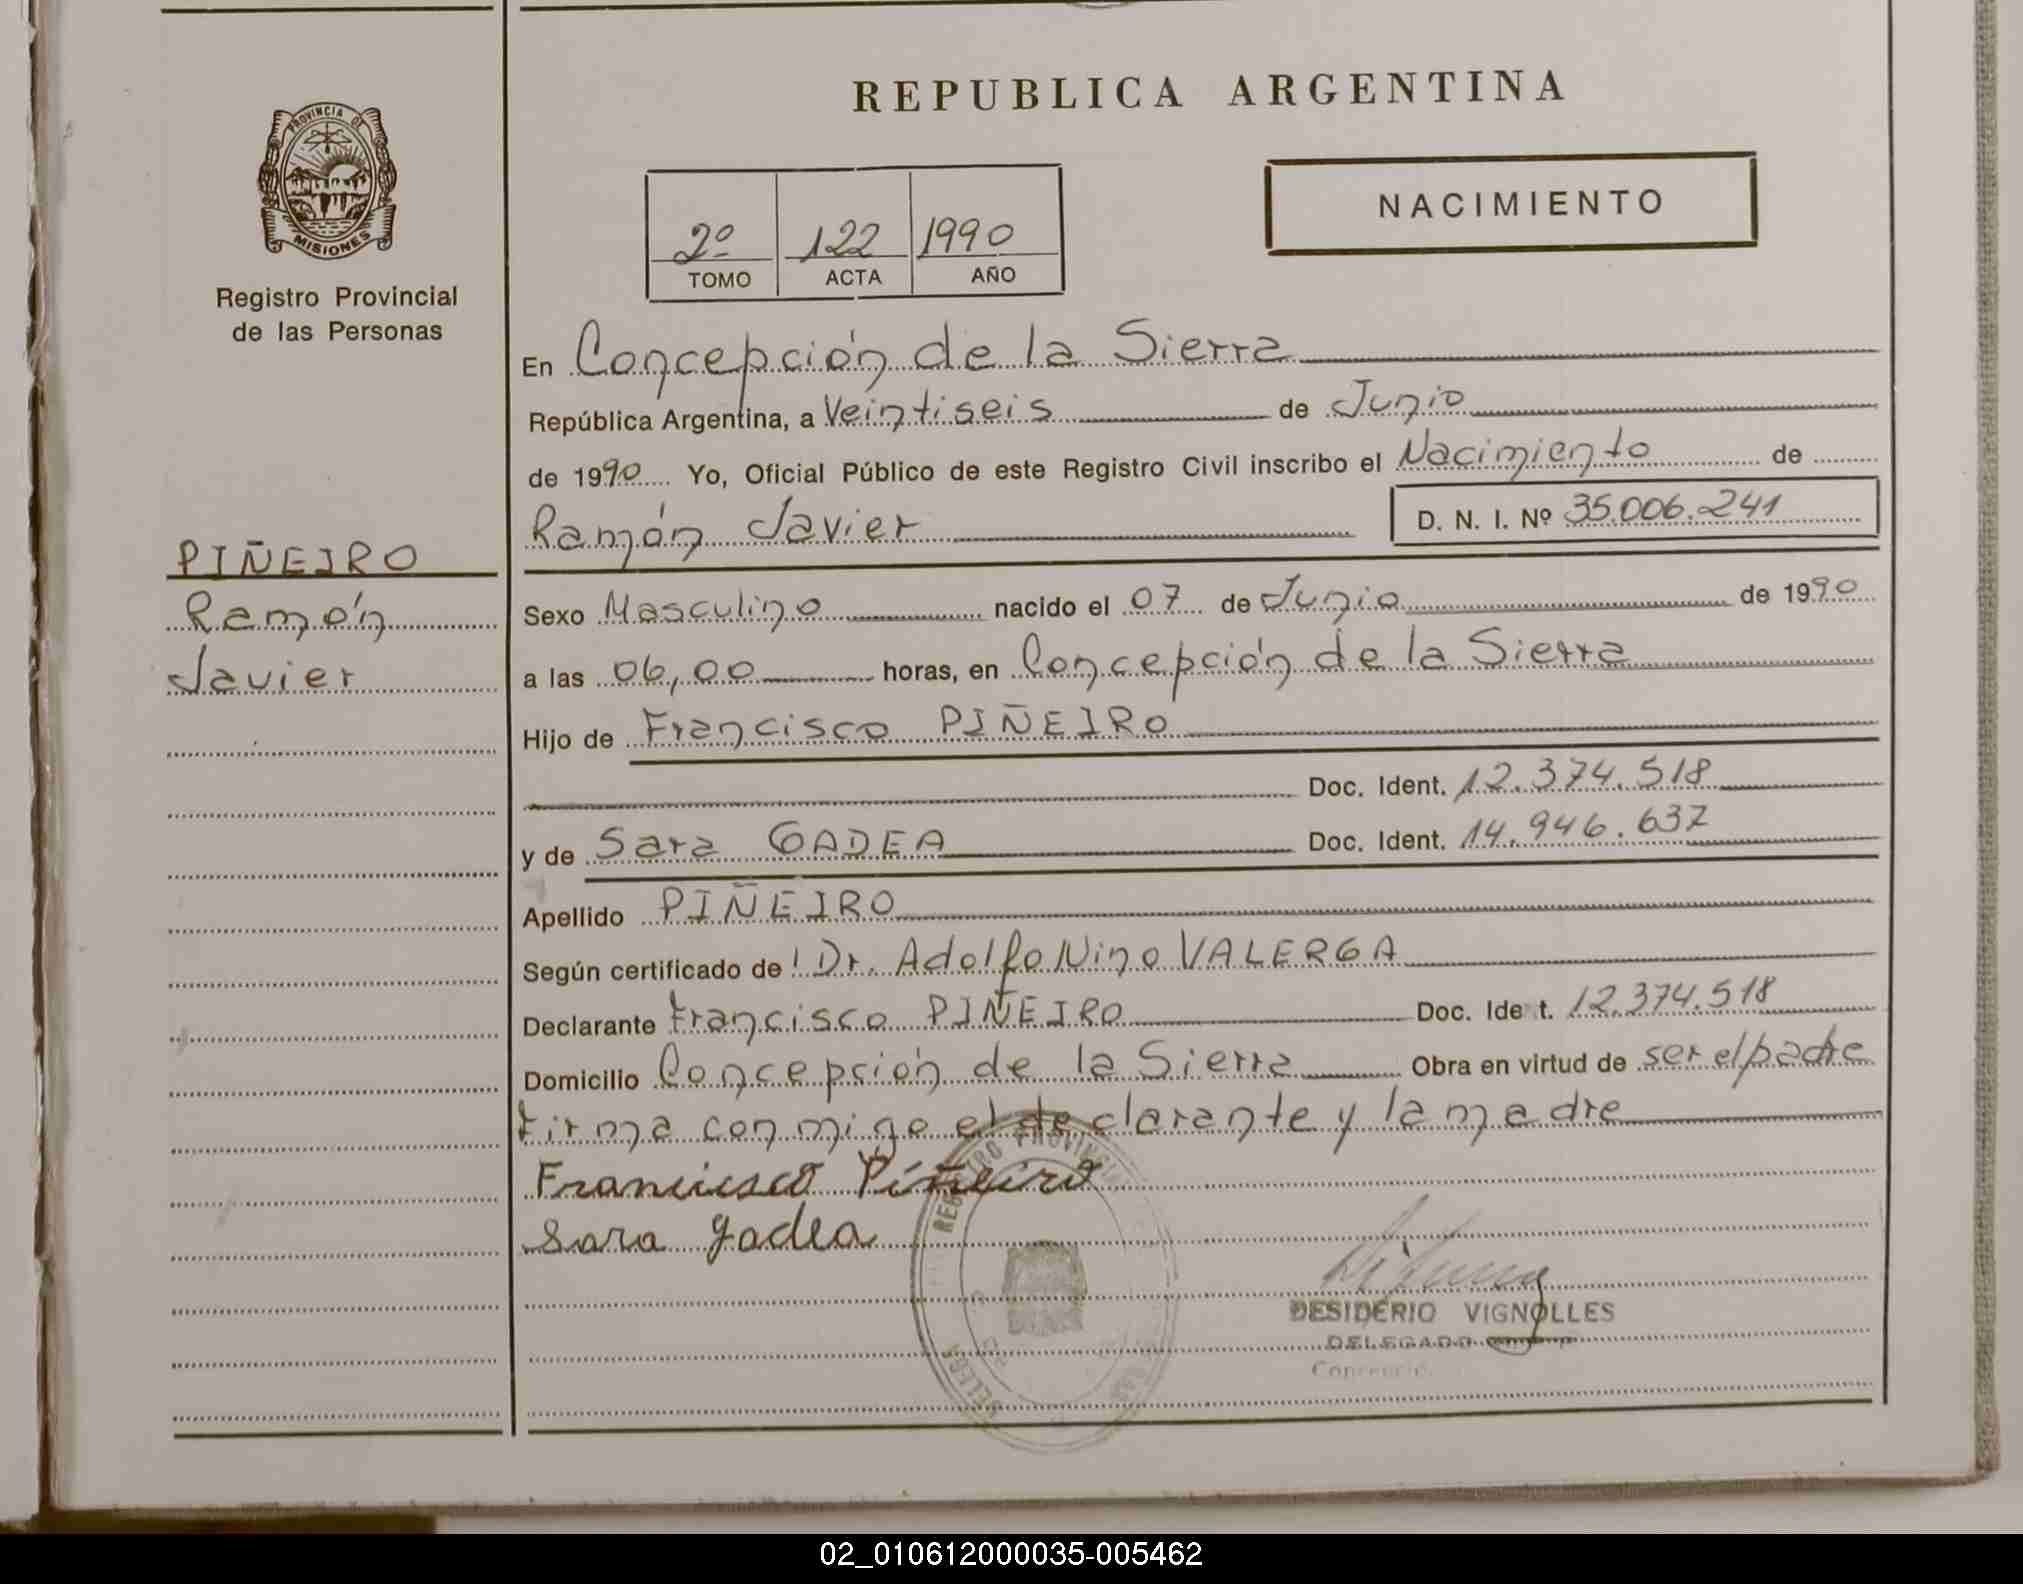 REPUBLICA ARGENTINA
PROVINCIA DE
MISIONES
Registro Provincial
de las Personas
2º 122 1990
TOMO ACTA AÑO
NACIMIENTO
En Concepción de la Sierra
República Argentina, a Veintiseis de Junio
de 1990 Yo, Oficial Público de este Registro Civil inscribo el Nacimiento de
Ramón Javier D. N. I. Nº 35.006.241
PIÑEIRO
Ramón
Javier
Sexo Masculino nacido el 07 de Junio de 1990
a las 06,00 horas, en Concepción de la Sierra
Hijo de Francisco PIÑEIRO
Doc. Ident. 12.374.518
y de Sara GADEA Doc. Ident. 14.946.637
Apellido PIÑEIRO
Según certificado de Dr. Adolfo Nino VALERGA
Declarante Francisco PIÑEIRO Doc. Ident. 12.374.518
Domicilio Concepción de la Sierra Obra en virtud de ser el padre
Firma conmigo el declarante y la madre
Francisco Piñeiro
Sara Gadea
REGISTRO PROVINCIAL
DESIDERIO VIGNOLLES
DELEGADO
02_010612000035-005462